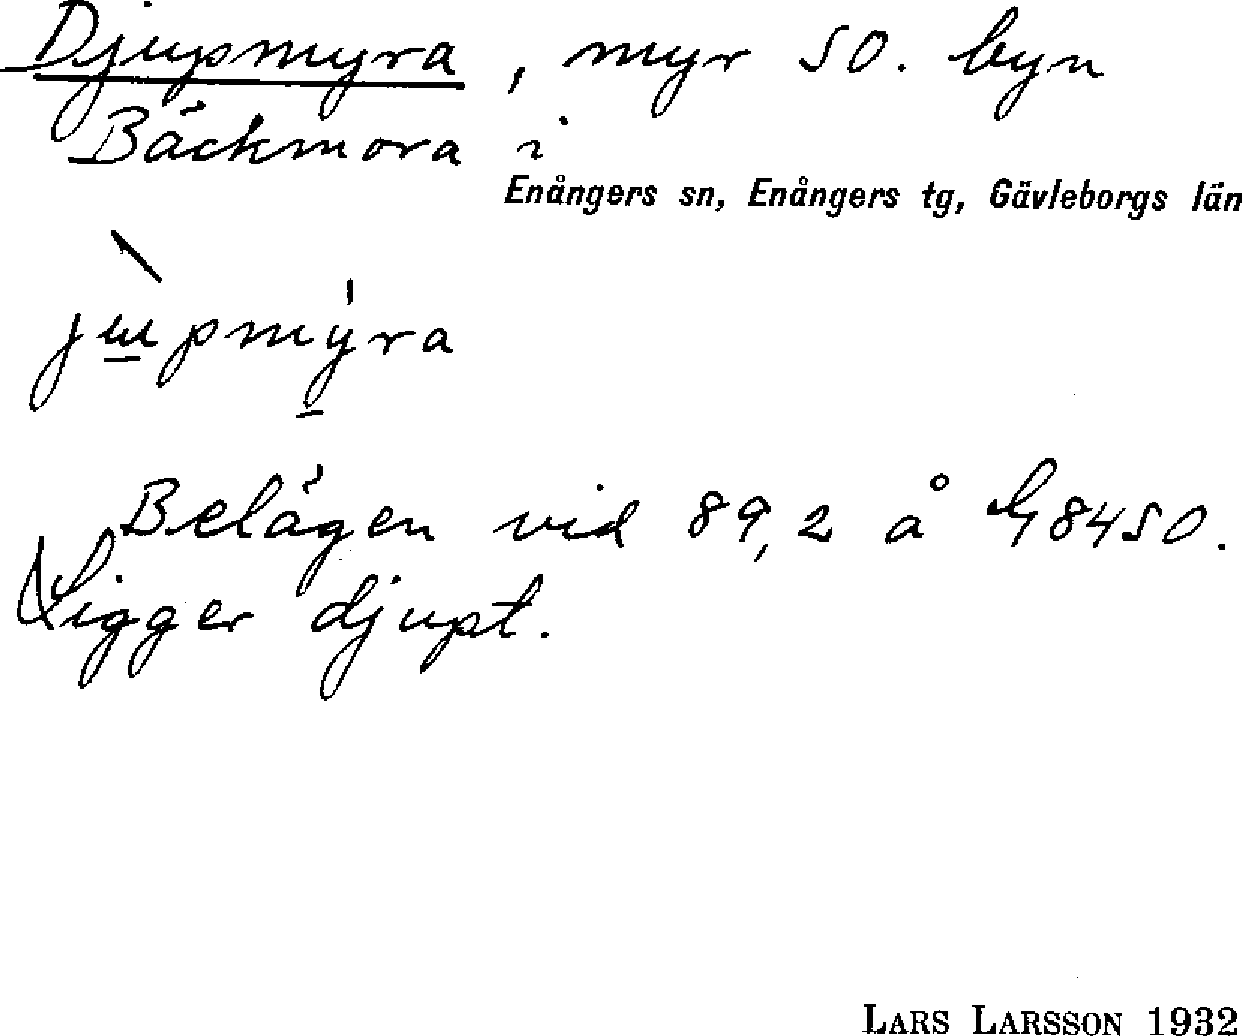 Djupmyra, myr SO. byn
Bäckmora i
Enångers sn, Enångers tg, Gävleborgs län
jɯ̀pmýra
Belägen vid 89,2 å G8450.
Ligger djupt.
LARS LARSSON 1932